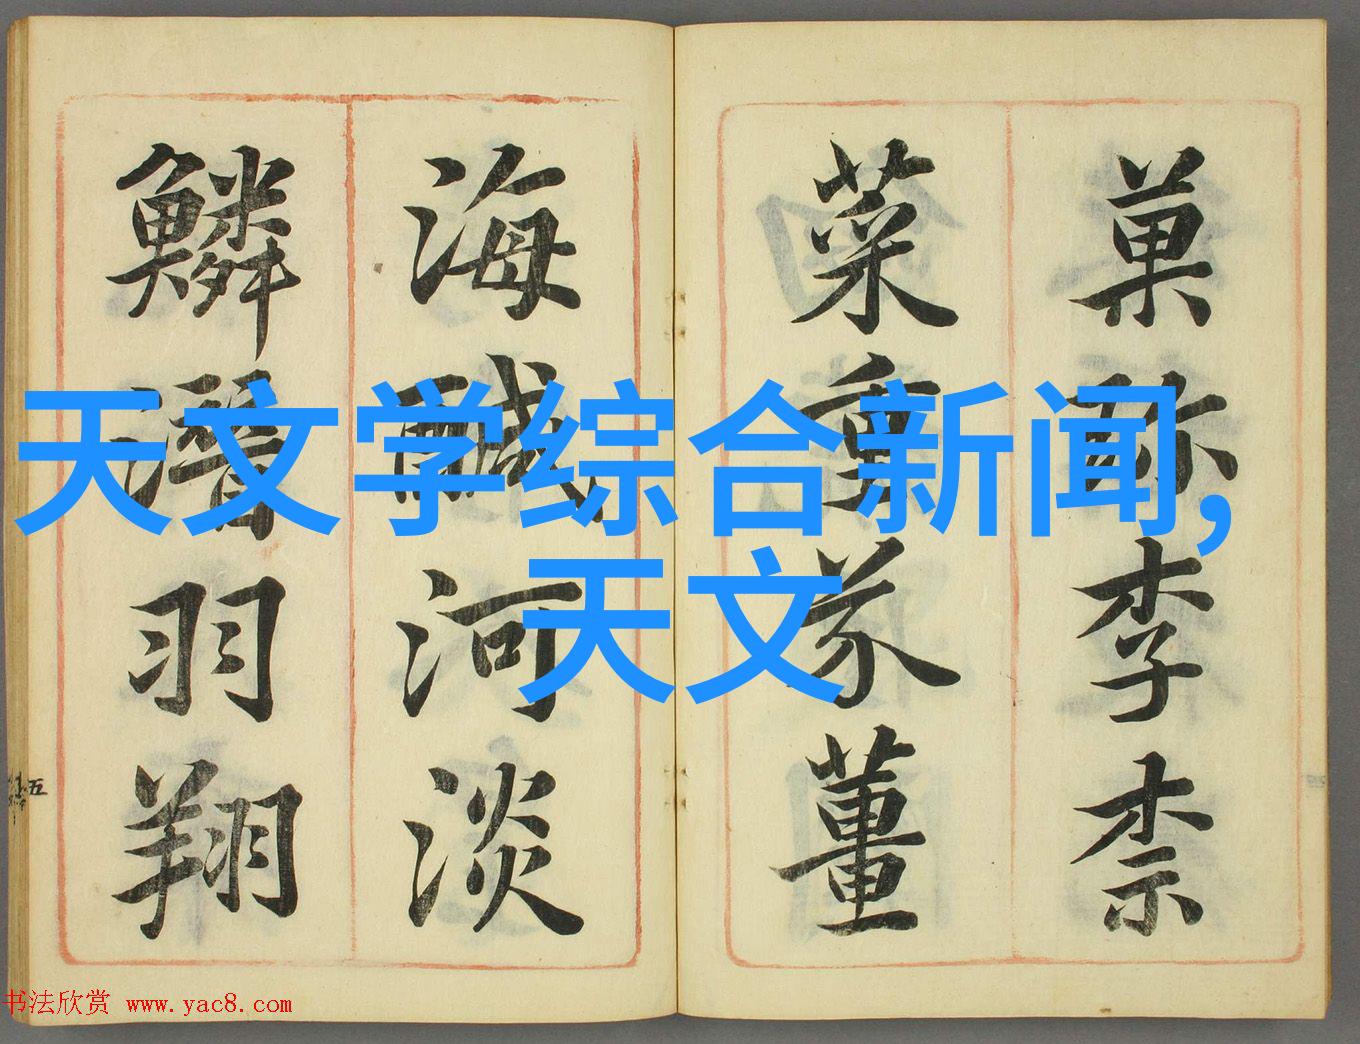 天文学综合新闻,
天文
菓珎李柰
菜重芥董
海醎河淡
鱗潛羽翔
五
书法欣赏 www.yac8.com